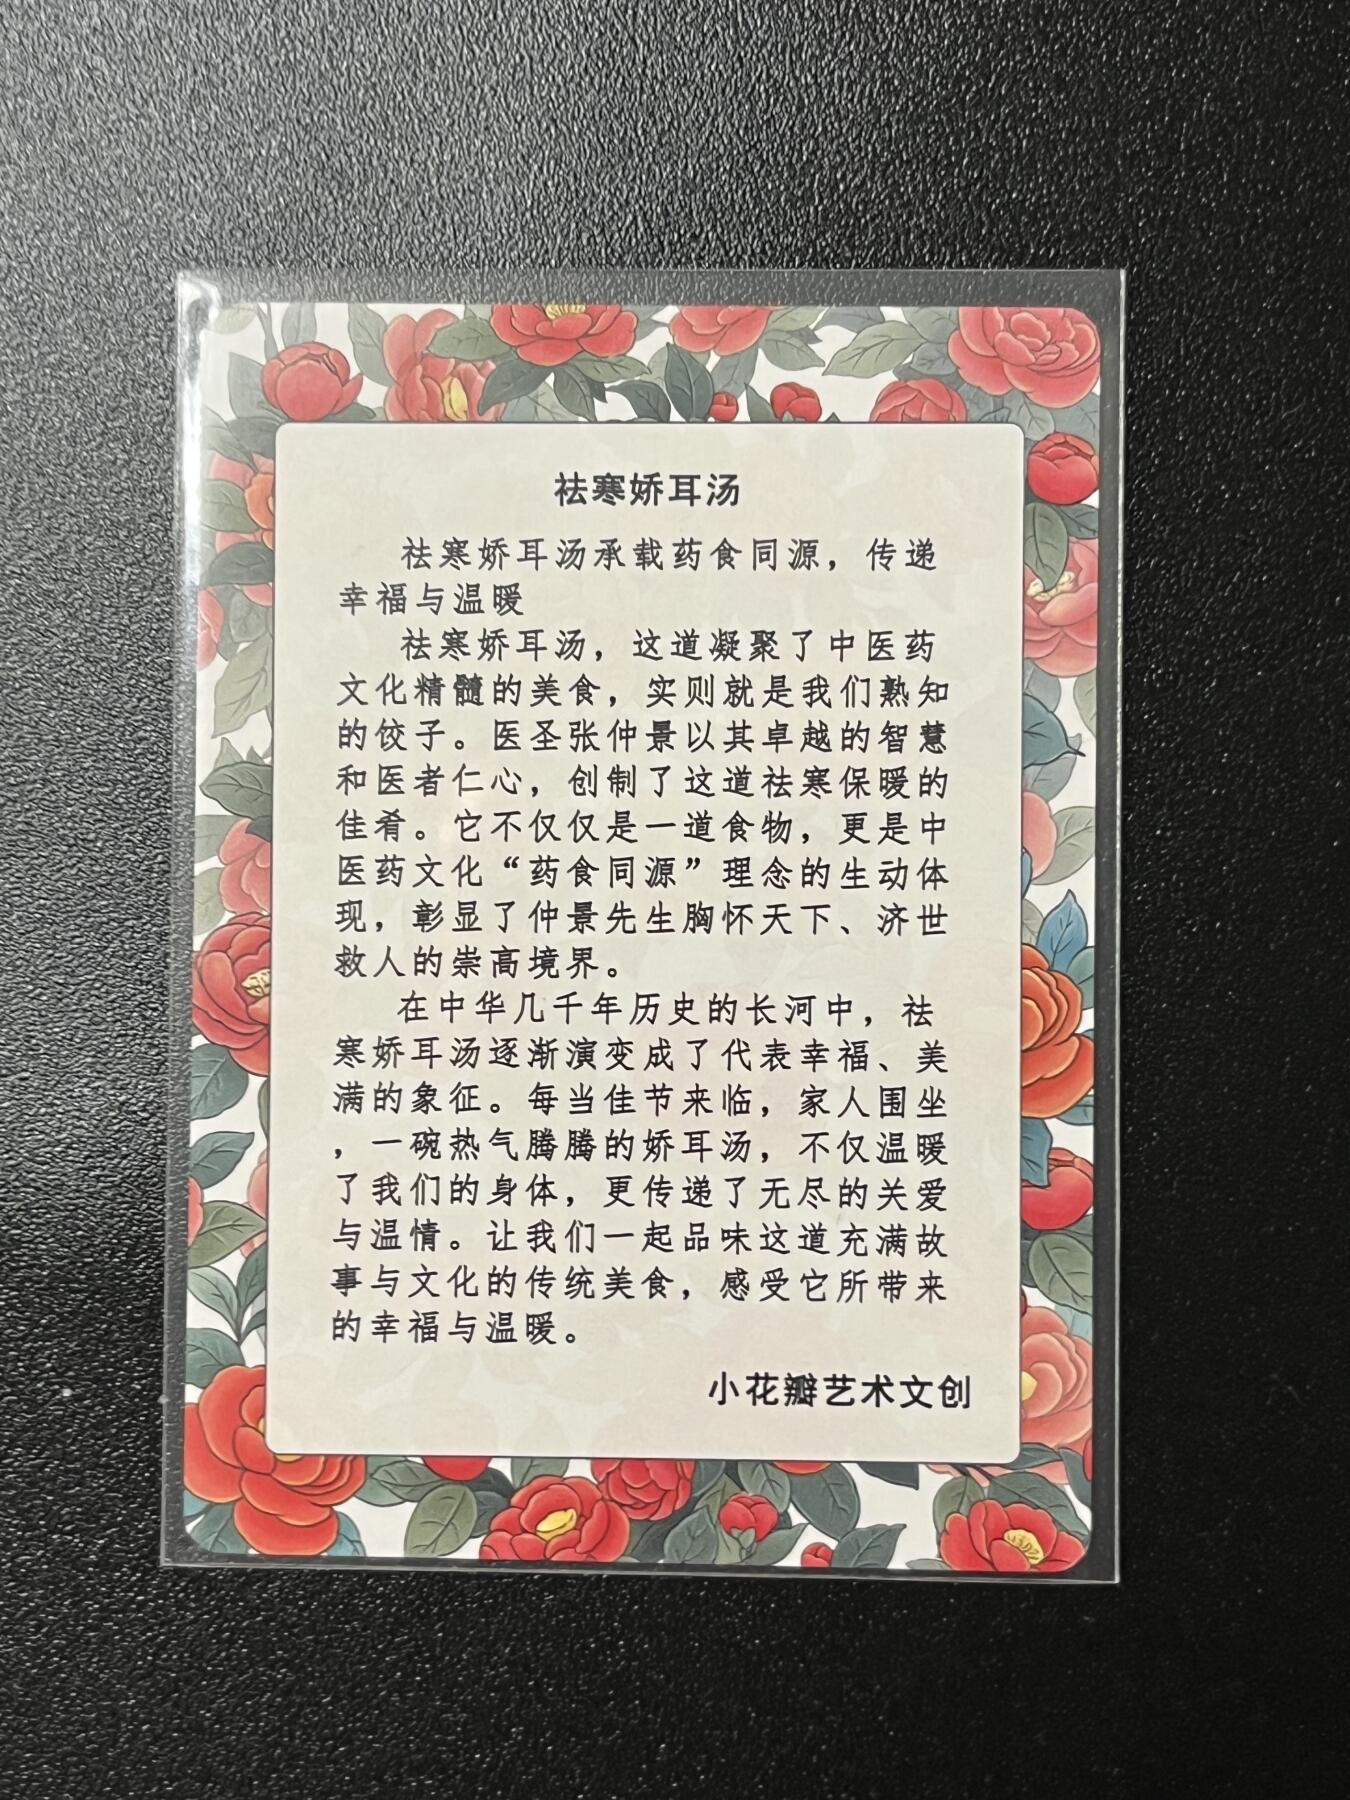 祛寒娇耳汤
祛寒娇耳汤承载药食同源，传递
幸福与温暖
祛寒娇耳汤，这道凝聚了中医药
文化精髓的美食，实则就是我们熟知
的饺子。医圣张仲景以其卓越的智慧
和医者仁心，创制了这道祛寒保暖的
佳肴。它不仅仅是一道食物，更是中
医药文化“药食同源”理念的生动体
现，彰显了仲景先生胸怀天下、济世
救人的崇高境界。
在中华几千年历史的长河中，祛
寒娇耳汤逐渐演变成了代表幸福、美
满的象征。每当佳节来临，家人围坐
，一碗热气腾腾的娇耳汤，不仅温暖
了我们的身体，更传递了无尽的关爱
与温情。让我们一起品味这道充满故
事与文化的传统美食，感受它所带来
的幸福与温暖。
小花瓣艺术文创